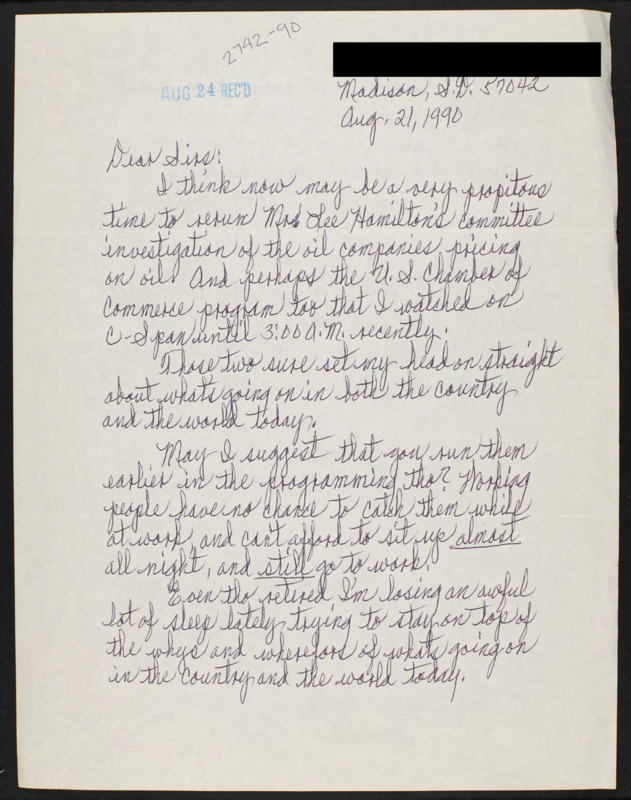 2742-90
AUG 24 REC'D
Madison, S.D. 57042
Aug. 21, 1990
Dear Sirs:
I think now may be a very propitous
time to rerun Mrs Lee Hamilton's committee
investigation of the oil companies pricing
on oil. And perhaps the U.S. Chamber of
Commerce program too that I watched on
C-Span until 3:00 A.M. recently.
Those two sure set my head on straight
about whats going on in both the country
and the world today.
May I suggest that you run them
earlier in the programming tho? Working
people have no chance to catch them while
at work, and can't afford to sit up almost
all night, and still go to work.
Even tho retired I'm losing an awful
lot of sleep lately trying to stay on top of
the whys and wherefors of whats going on
in the country and the world today.